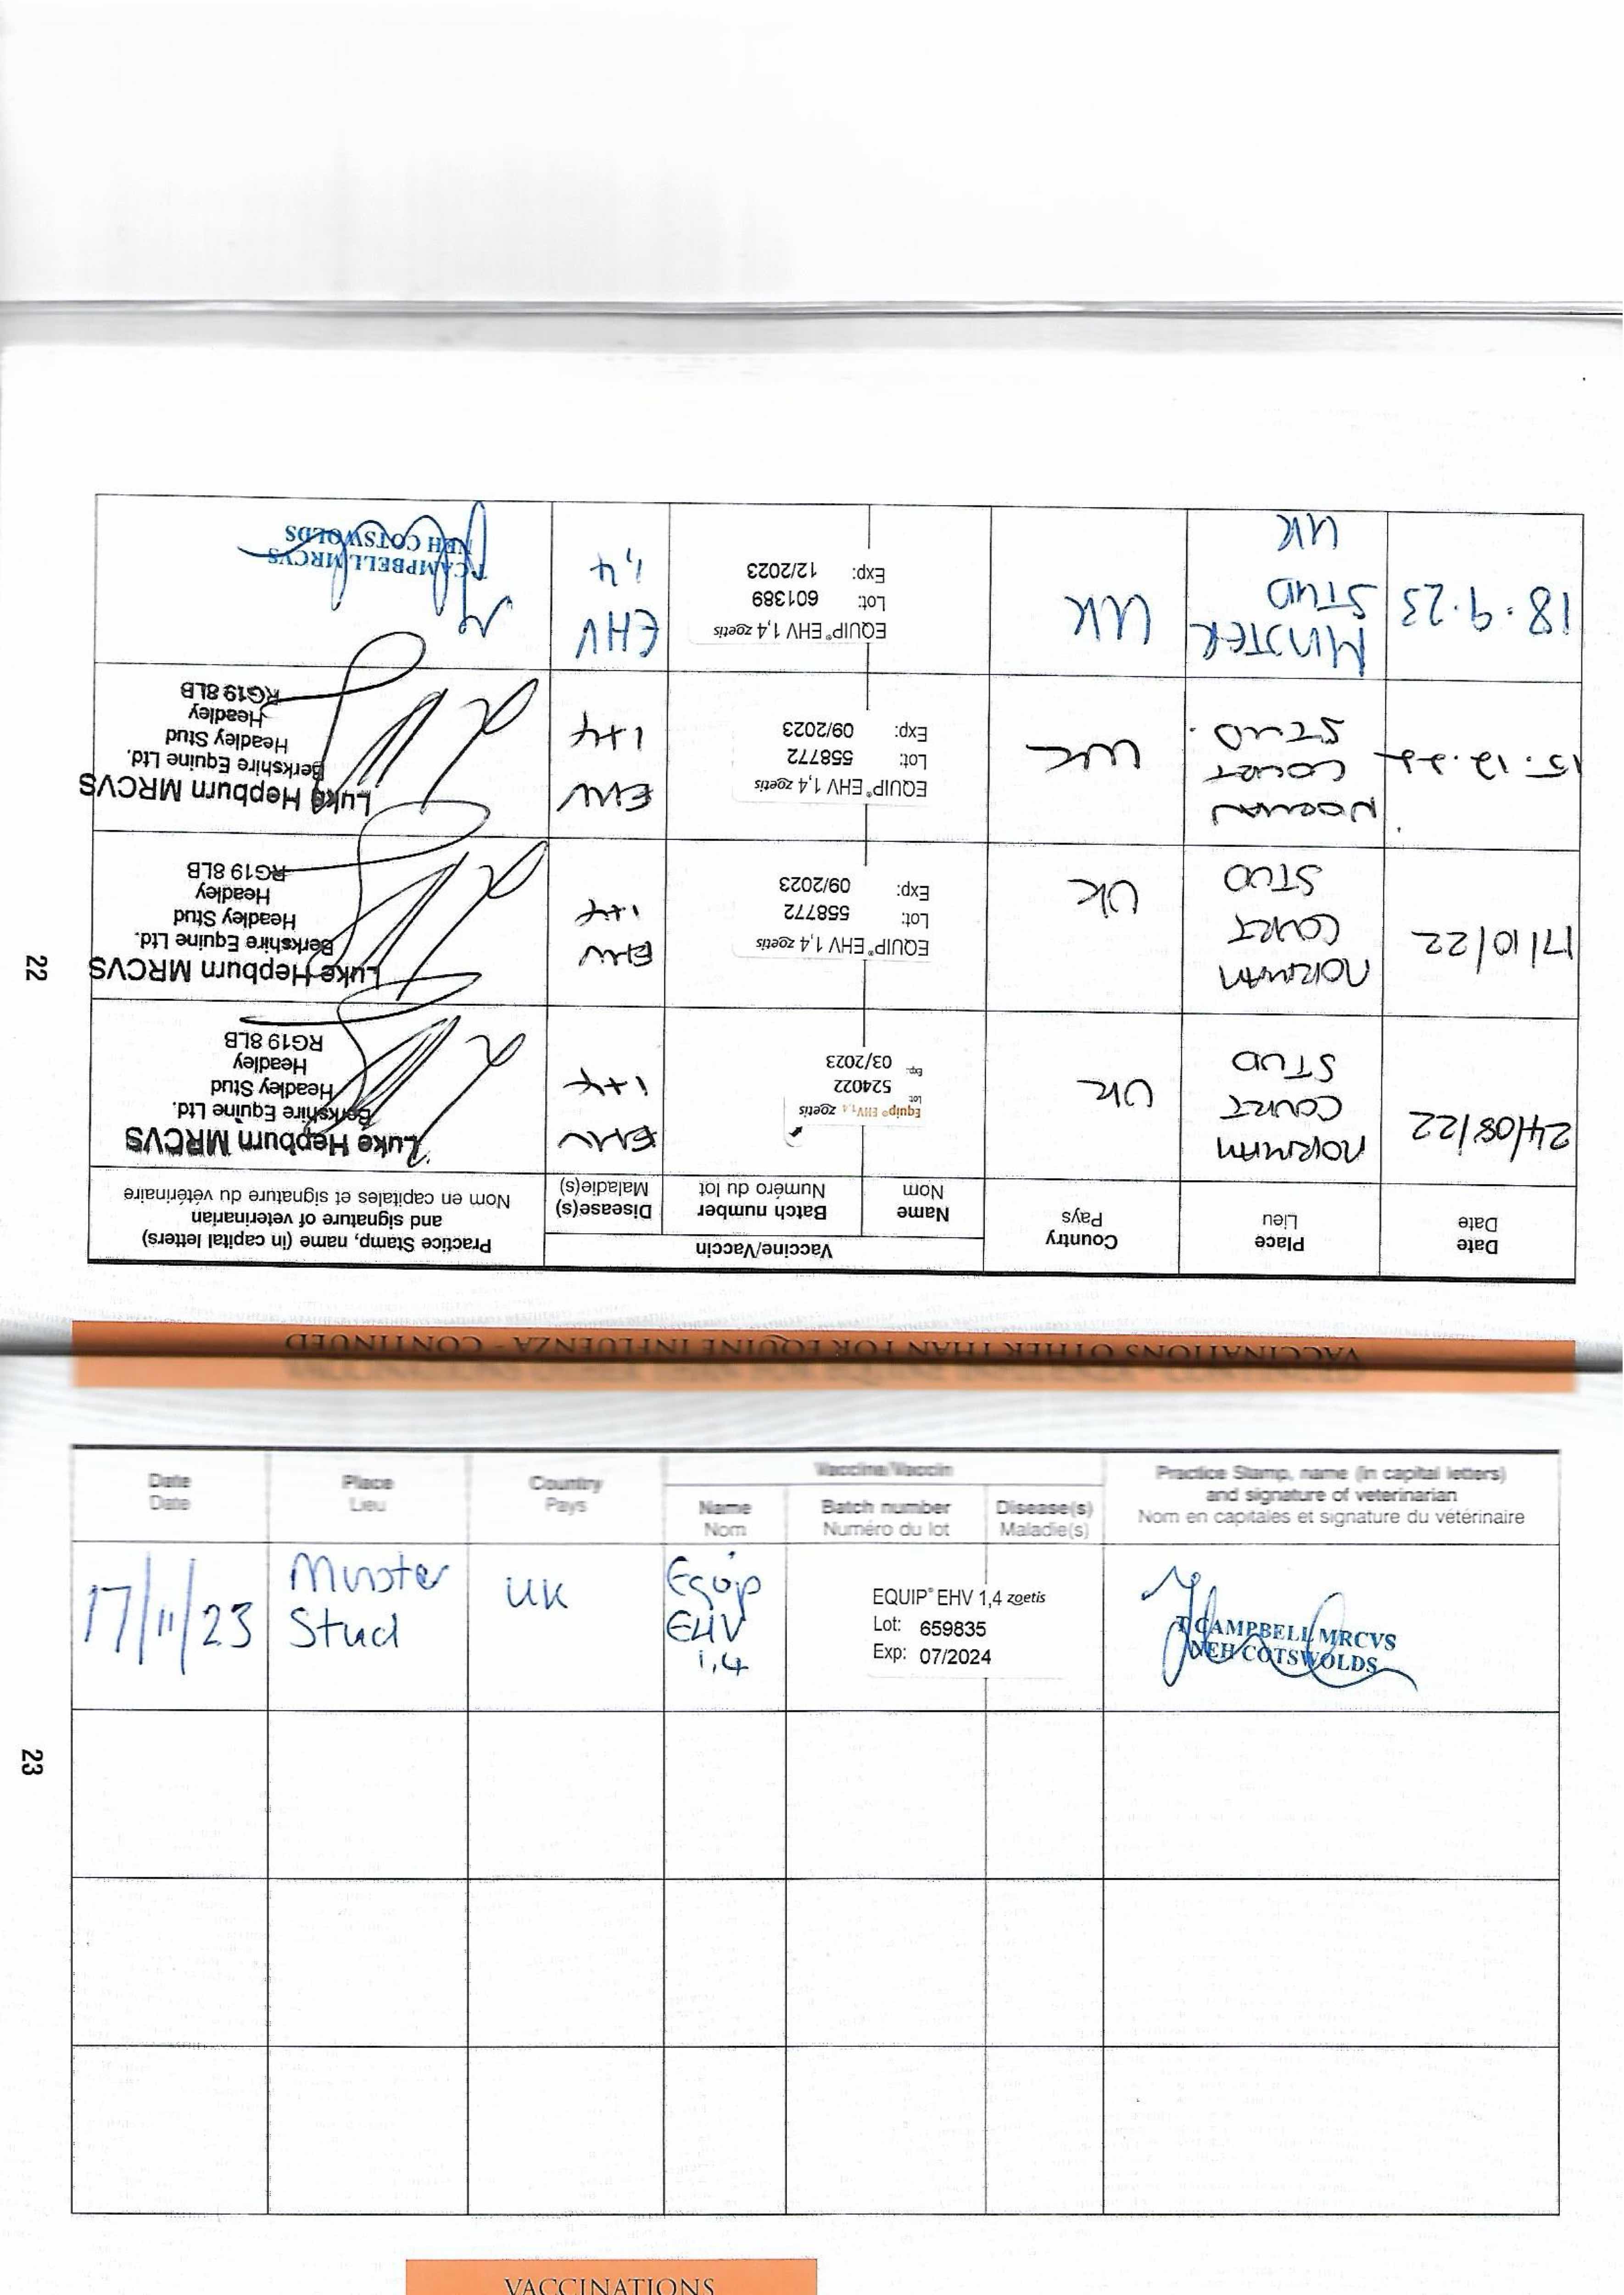 22
VACCINATIONS OTHER THAN FOR EQUINE INFLUENZA - CONTINUED
Date
Date
Place
Lieu
Country
Pays
Vaccine/Vaccin
Name
Nom
Batch number
Numéro du lot
Disease(s)
Maladie(s)
Practice Stamp, name (in capital letters)
and signature of veterinarian
Nom en capitales et signature du vétérinaire
24/08/22
NORMAN
COURT
STUD
UK
Equip® EHV 1,4 zoetis
Lot 524022
Exp. 03/2023
EHV
1+4
Luke Hepburn MRCVS
Berkshire Equine Ltd.
Headley Stud
Headley
RG19 8LB
17/10/22
NORMAN
COURT
STUD
UK
EQUIP® EHV 1,4 zoetis
Lot: 558772
Exp: 09/2023
EHV
1+4
Luke Hepburn MRCVS
Berkshire Equine Ltd.
Headley Stud
Headley
RG19 8LB
15.12.22
NORMAN
COURT
STUD.
UK
EQUIP® EHV 1,4 zoetis
Lot: 558772
Exp: 09/2023
EHV
1+4
Luke Hepburn MRCVS
Berkshire Equine Ltd.
Headley Stud
Headley
RG19 8LB
18.9.23
MINSTER
STUD
UK
UK
EQUIP® EHV 1,4 zoetis
Lot: 601389
Exp: 12/2023
EHV
1,4
T CAMPBELL MRCVS
NEH COTSWOLDS
23
Date
Date
Place
Lieu
Country
Pays
Vaccine/Vaccin
Name
Nom
Batch number
Numéro du lot
Disease(s)
Maladie(s)
Practice Stamp, name (in capital letters)
and signature of veterinarian
Nom en capitales et signature du vétérinaire
17/11/23
Minster
Stud
UK
Equip
EHV
1,4
EQUIP® EHV 1,4 zoetis
Lot: 659835
Exp: 07/2024
T CAMPBELL MRCVS
NEH COTSWOLDS
VACCINATIONS